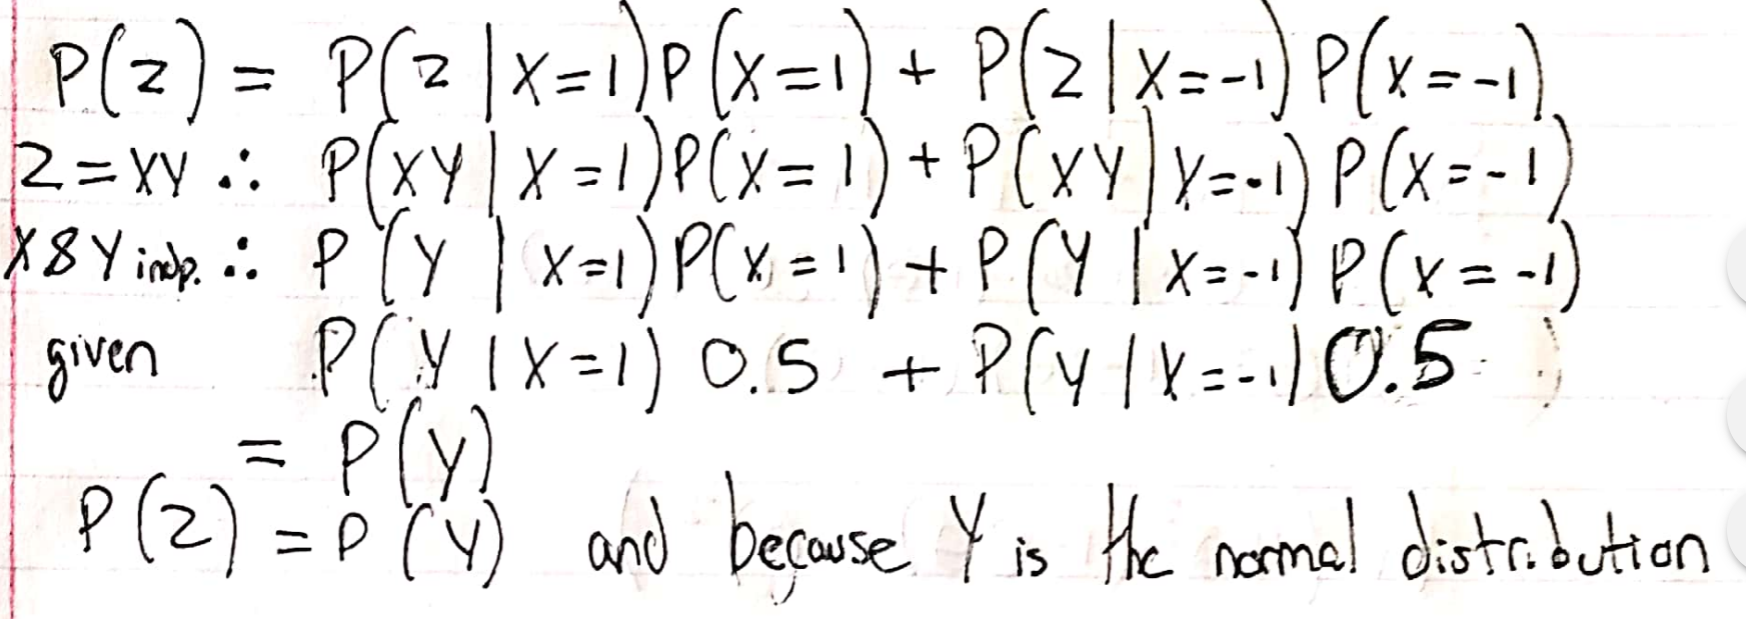 P(Z) = P(Z | X=1)P(X=1) + P(Z | X=-1) P(X=-1)
Z=XY ∴ P(XY | X=1)P(X=1) + P(XY | X=-1) P(X=-1)
X & Y indp. ∴ P(Y | X=1)P(X=1) + P(Y | X=-1) P(X=-1)
given P(Y | X=1) 0.5 + P(Y | X=-1) 0.5
= P(Y)
P(Z) = P(Y) and because Y is the normal distribution